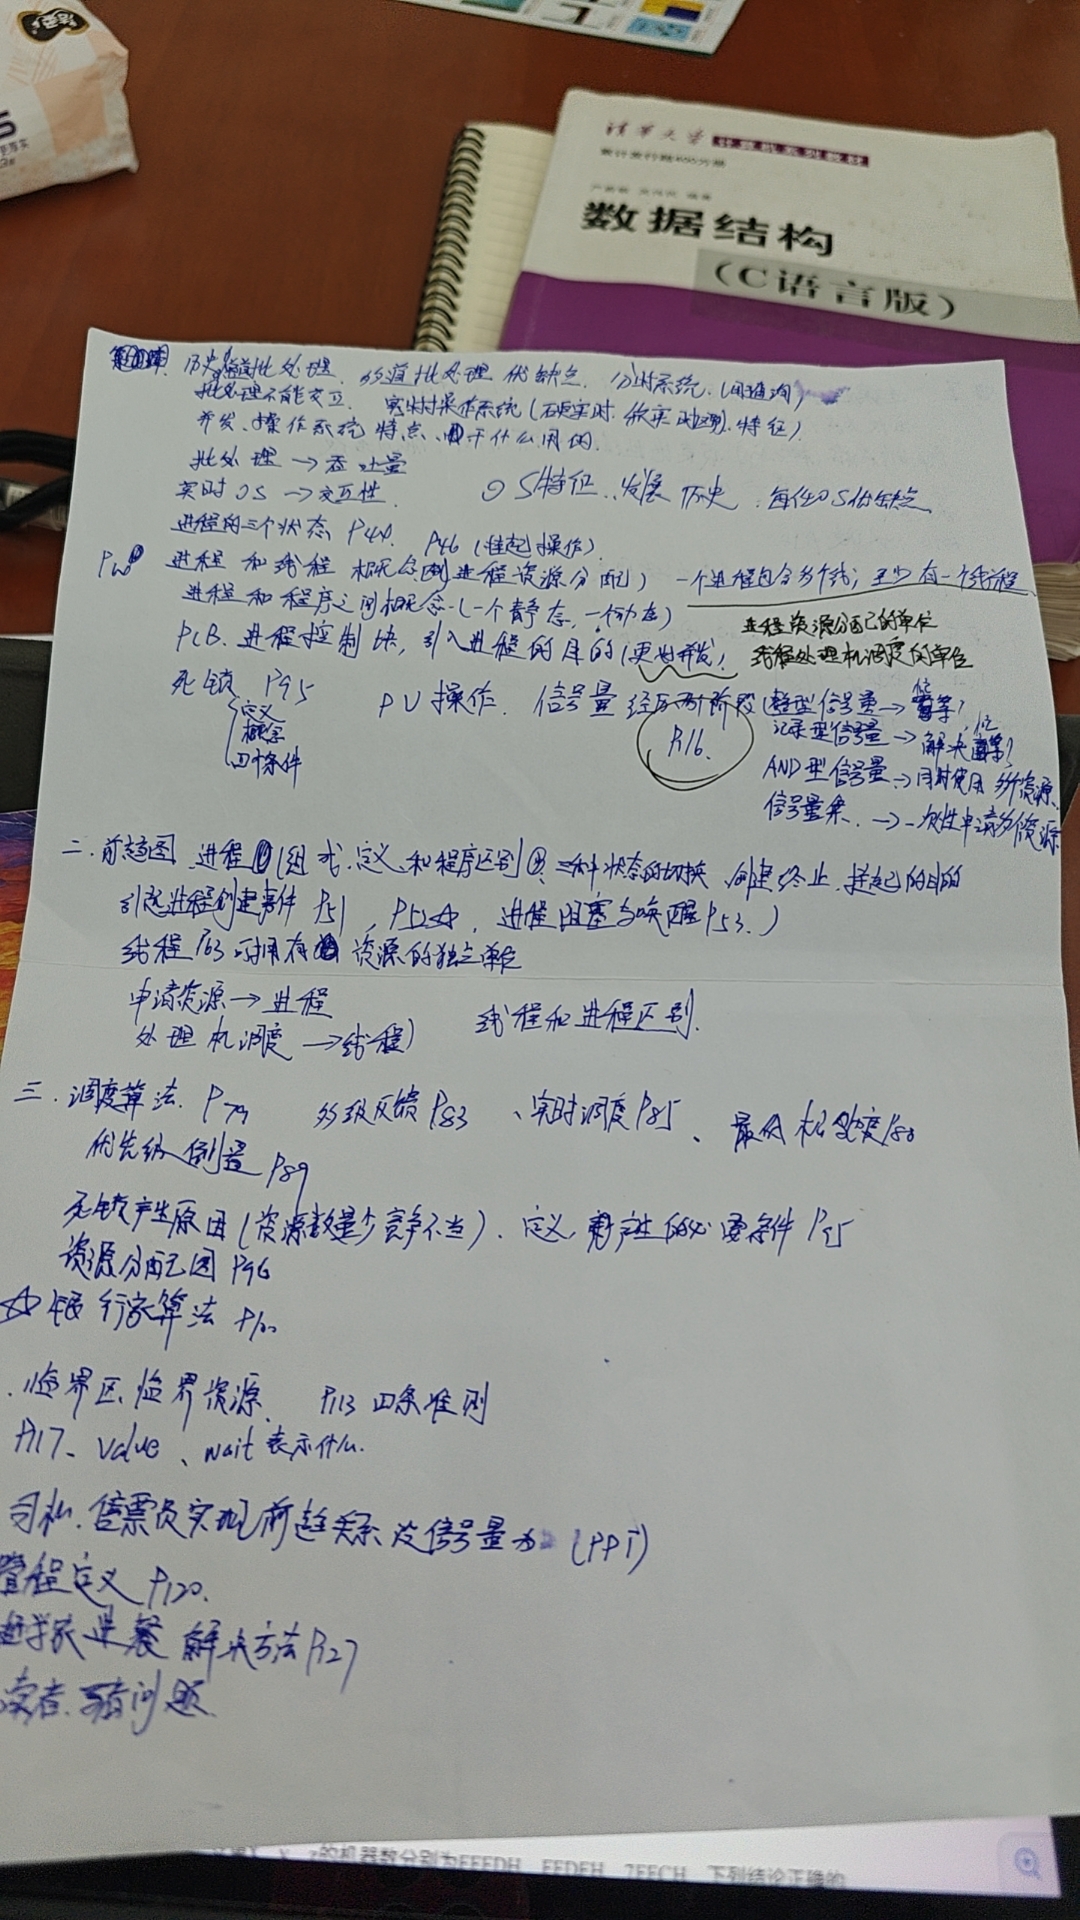 清华大学 计算机系列教材
数据结构
（C语言版）
历史 单道批处理、多道批处理 优缺点、分时系统、(问 查询)
批处理不能交互、实时操作系统(硬实时、软实时区别、特征)
并发、操作系统 特点、干什么用的.
批处理 → 吞吐量
实时OS → 交互性. OS特征、发展 历史、每代OS优缺点.
进程的三个状态 P44. P46 (挂起操作).
进程 和 线程 概念(进程资源分配) 一个进程包含多个线; 至少有一个线程
进程和程序之间概念.(一个静态, 一个动态)
进程资源分配的单位
PCB. 进程控制块, 引入进程的目的(更好并发)
线程处理机调度的单位
死锁 P95 PV操作. 信号量 经历两阶段(整型信号量→
定义
概念
四个条件
P116.
记录型信号量→解决
AND型信号量→同时使用 多个资源.
信号量集. →一次性申请多个资源
二.前趋图 进程(组成.定义.和程序区别 三种状态的切换 创建终止.挂起的目的
引起进程创建事件 P51, P52☆, 进程阻塞与唤醒P53.)
线程 P63 可拥有 资源的独立单位
申请资源→进程
处理机调度→线程) 线程和进程区别.
三.调度算法. P79 多级反馈P83 、实时调度P85、最低松弛度P88
优先级倒置P89
死锁产生原因(资源数量少 竞争不当). 定义, 产生的必要条件 P95
资源分配图 P96
☆银行家算法 P100
.临界区.临界资源. P113 四条准则
P117、value、wait 表示什么.
司机.售票员实现前趋关系及信号量为 (PPT)
管程定义 P120.
哲学家进餐 解决方法P127
读者.写者问题.